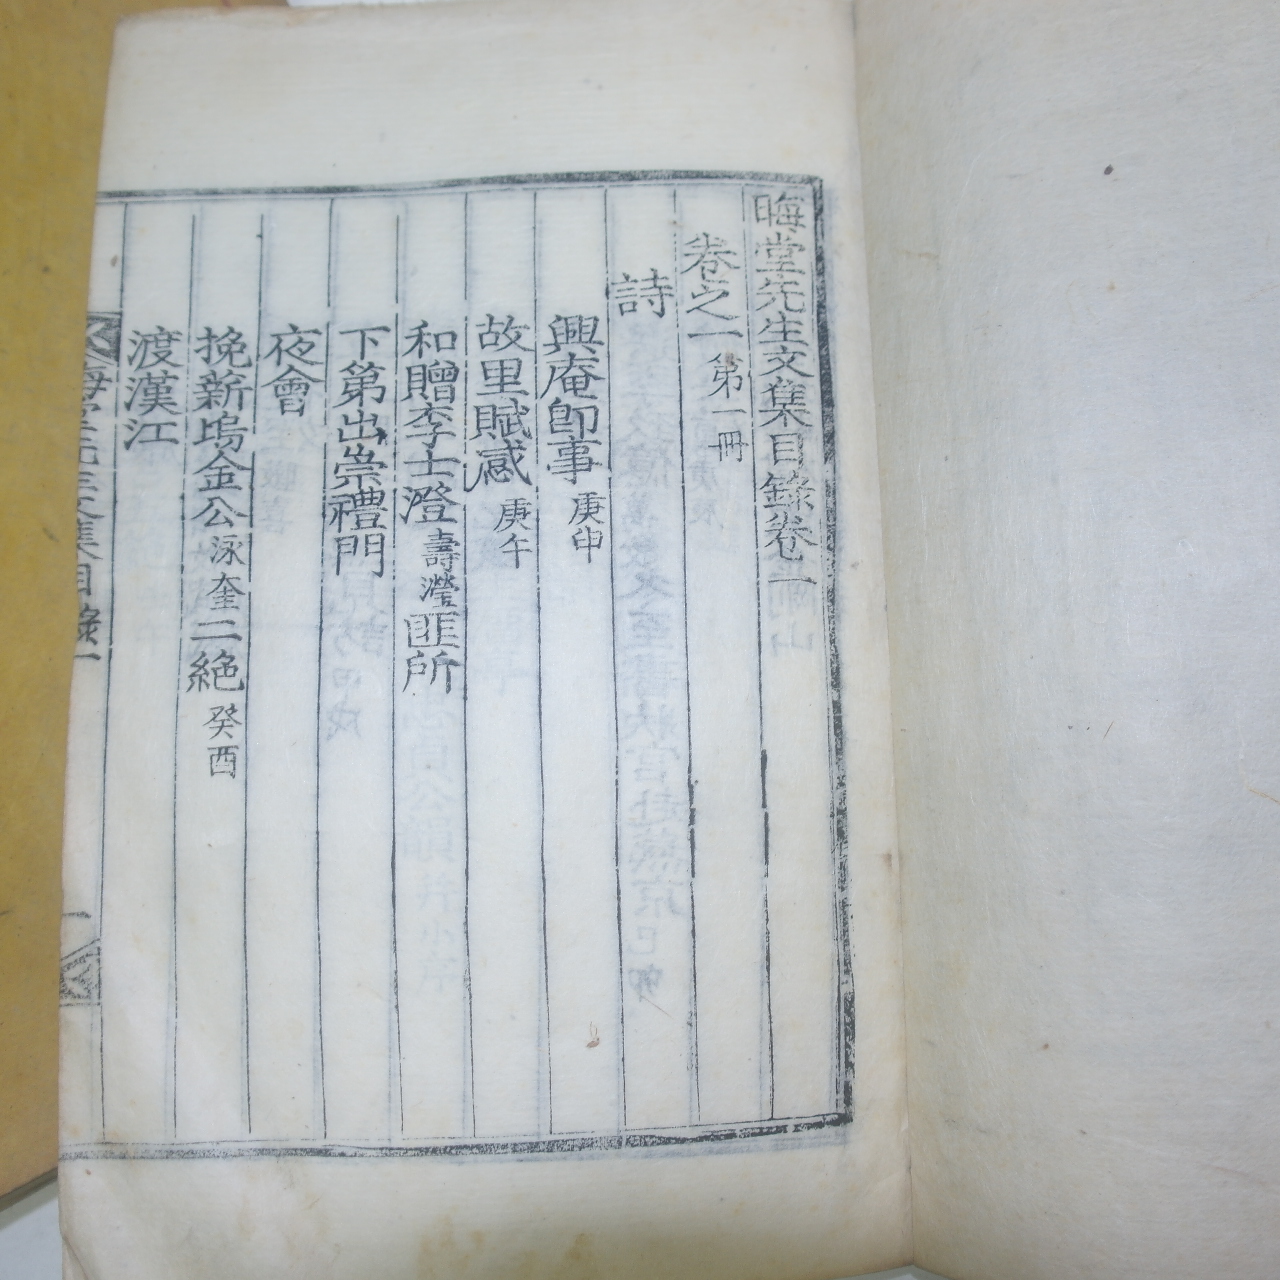 晦堂先生文集目錄卷一
卷之一 第一冊
詩
興庵卽事 庚申
故里賦感 庚午
和贈李士澄 壽瀅 匪所
下第出崇禮門
夜會
挽新塢金公 泳奎 二絶 癸酉
渡漢江
晦堂先生文集目錄 一